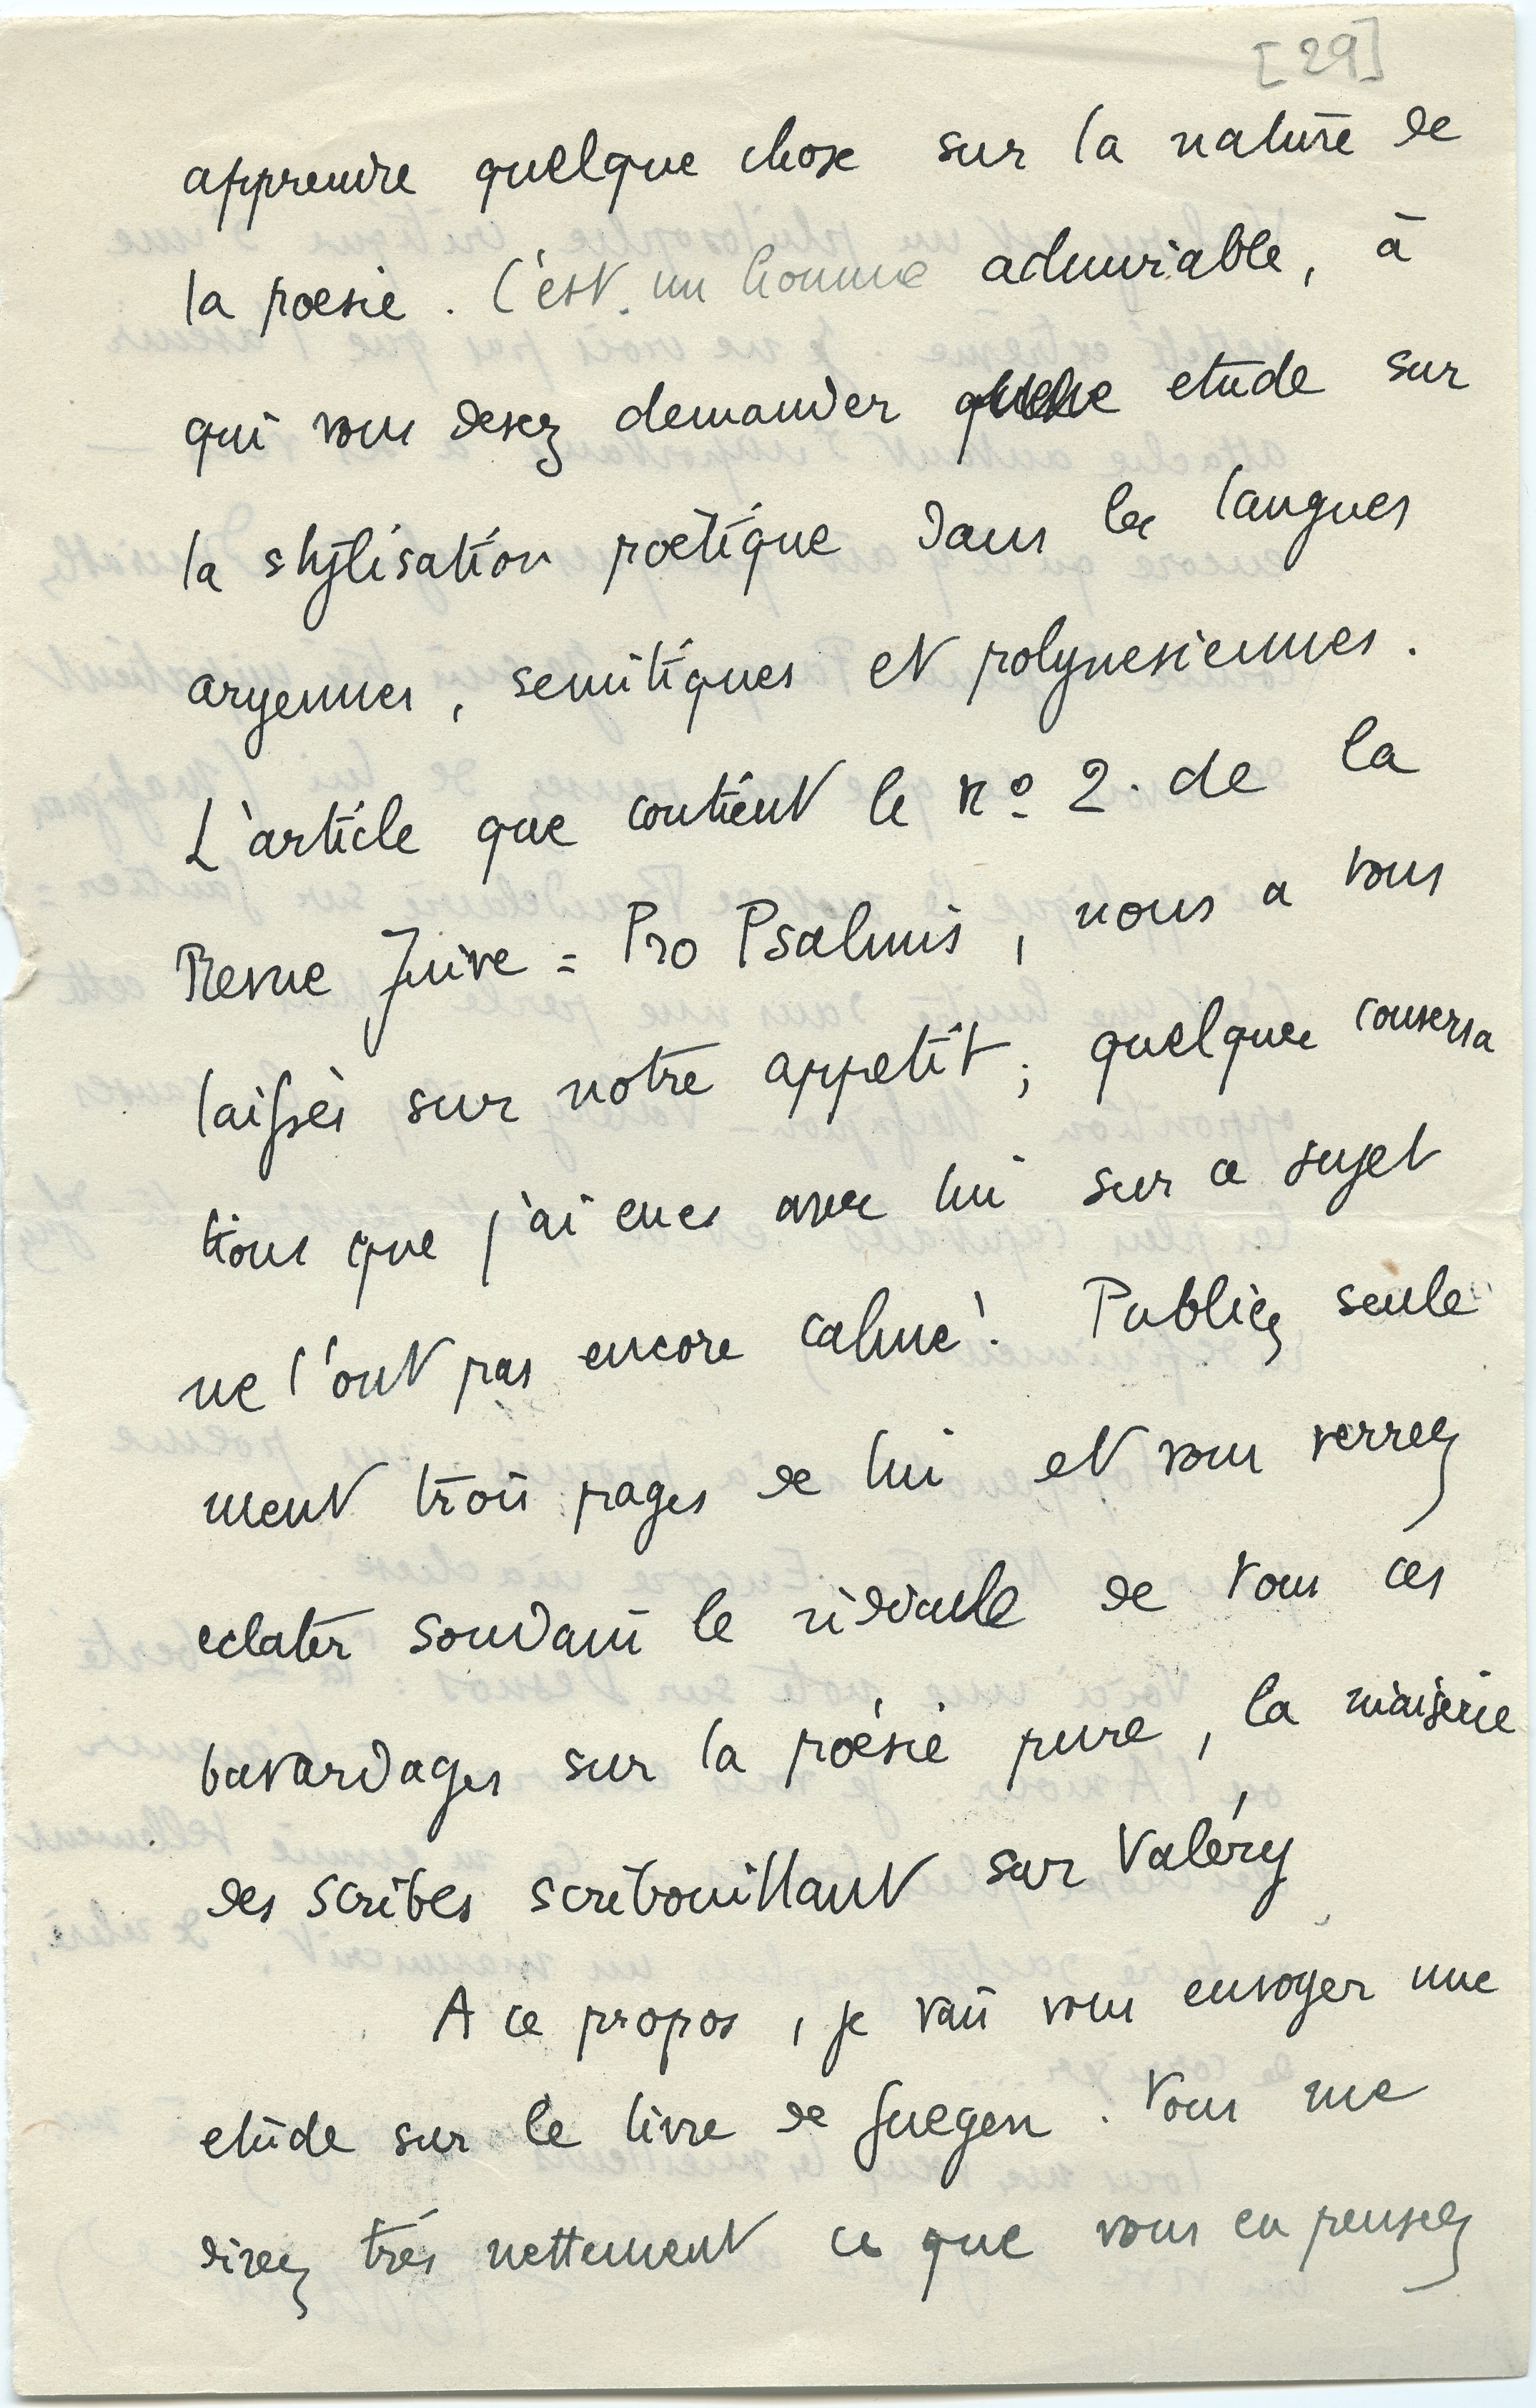 [29]
apprendre quelque chose sur la nature de
la poesie. C'est un homme admirable, à
qui vous devez demander etude sur
la stylisation poetique dans les langues
aryennes, semitiques et polynesiennes.
L'article que contient le nº 2. de la
Revue Juive = Pro Psalmis, nous a tous
laissés sur notre appetit; quelques conversa
tions que j'ai eues avec lui sur ce sujet
ne l'ont pas encore calmé! Publiez seule
ment trois pages de lui et vous verrez
eclater soudain le ridicule de tous ces
bavardages sur la poésie pure, la niaiserie
des scribes scribouillant sur Valéry
A ce propos, je vais vous envoyer une
etude sur le livre de Guegen. Vous me
direz très nettement ce que vous en pensez